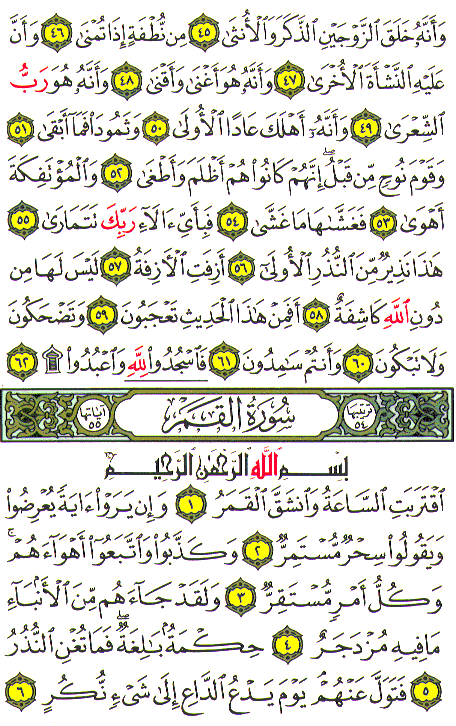 وَأَنَّهُۥ خَلَقَ ٱلزَّوۡجَيۡنِ ٱلذَّكَرَ وَٱلۡأُنثَىٰ ٤٥ مِن نُّطۡفَةٍ إِذَا تُمۡنَىٰ ٤٦ وَأَنَّ
عَلَيۡهِ ٱلنَّشۡأَةَ ٱلۡأُخۡرَىٰ ٤٧ وَأَنَّهُۥ هُوَ أَغۡنَىٰ وَأَقۡنَىٰ ٤٨ وَأَنَّهُۥ هُوَ رَبُّ
ٱلشِّعۡرَىٰ ٤٩ وَأَنَّهُۥٓ أَهۡلَكَ عَادًا ٱلۡأُولَىٰ ٥٠ وَثَمُودَاْ فَمَآ أَبۡقَىٰ ٥١
وَقَوۡمَ نُوحٖ مِّن قَبۡلُۖ إِنَّهُمۡ كَانُواْ هُمۡ أَظۡلَمَ وَأَطۡغَىٰ ٥٢ وَٱلۡمُؤۡتَفِكَةَ
أَهۡوَىٰ ٥٣ فَغَشَّىٰهَا مَا غَشَّىٰ ٥٤ فَبِأَيِّ ءَالَآءِ رَبِّكَ تَتَمَارَىٰ ٥٥
هَٰذَا نَذِيرٞ مِّنَ ٱلنُّذُرِ ٱلۡأُولَىٰٓ ٥٦ أَزِفَتِ ٱلۡأٓزِفَةُ ٥٧ لَيۡسَ لَهَا مِن
دُونِ ٱللَّهِ كَاشِفَةٌ ٥٨ أَفَمِنۡ هَٰذَا ٱلۡحَدِيثِ تَعۡجَبُونَ ٥٩ وَتَضۡحَكُونَ
وَلَا تَبۡكُونَ ٦٠ وَأَنتُمۡ سَٰمِدُونَ ٦١ فَٱسۡجُدُواْۤ لِلَّهِۤ وَٱعۡبُدُواْ ۩ ٦٢
ترتيبها ٥٤ سُورَةُ القَمَرِ آياتها ٥٥
بِسۡمِ ٱللَّهِ ٱلرَّحۡمَٰنِ ٱلرَّحِيمِ
ٱقۡتَرَبَتِ ٱلسَّاعَةُ وَٱنشَقَّ ٱلۡقَمَرُ ١ وَإِن يَرَوۡاْ ءَايَةٗ يُعۡرِضُواْ
وَيَقُولُواْ سِحۡرٞ مُّسۡتَمِرّٞ ٢ وَكَذَّبُواْ وَٱتَّبَعُوٓاْ أَهۡوَآءَهُمۡۚ
وَكُلُّ أَمۡرٖ مُّسۡتَقِرّٞ ٣ وَلَقَدۡ جَآءَهُم مِّنَ ٱلۡأَنۢبَآءِ
مَا فِيهِ مُزۡدَجَرٌ ٤ حِكۡمَةُۢ بَٰلِغَةٞۖ فَمَا تُغۡنِ ٱلنُّذُرُ
٥ فَتَوَلَّ عَنۡهُمۡۘ يَوۡمَ يَدۡعُ ٱلدَّاعِ إِلَىٰ شَيۡءٖ نُّكُرٍ ٦